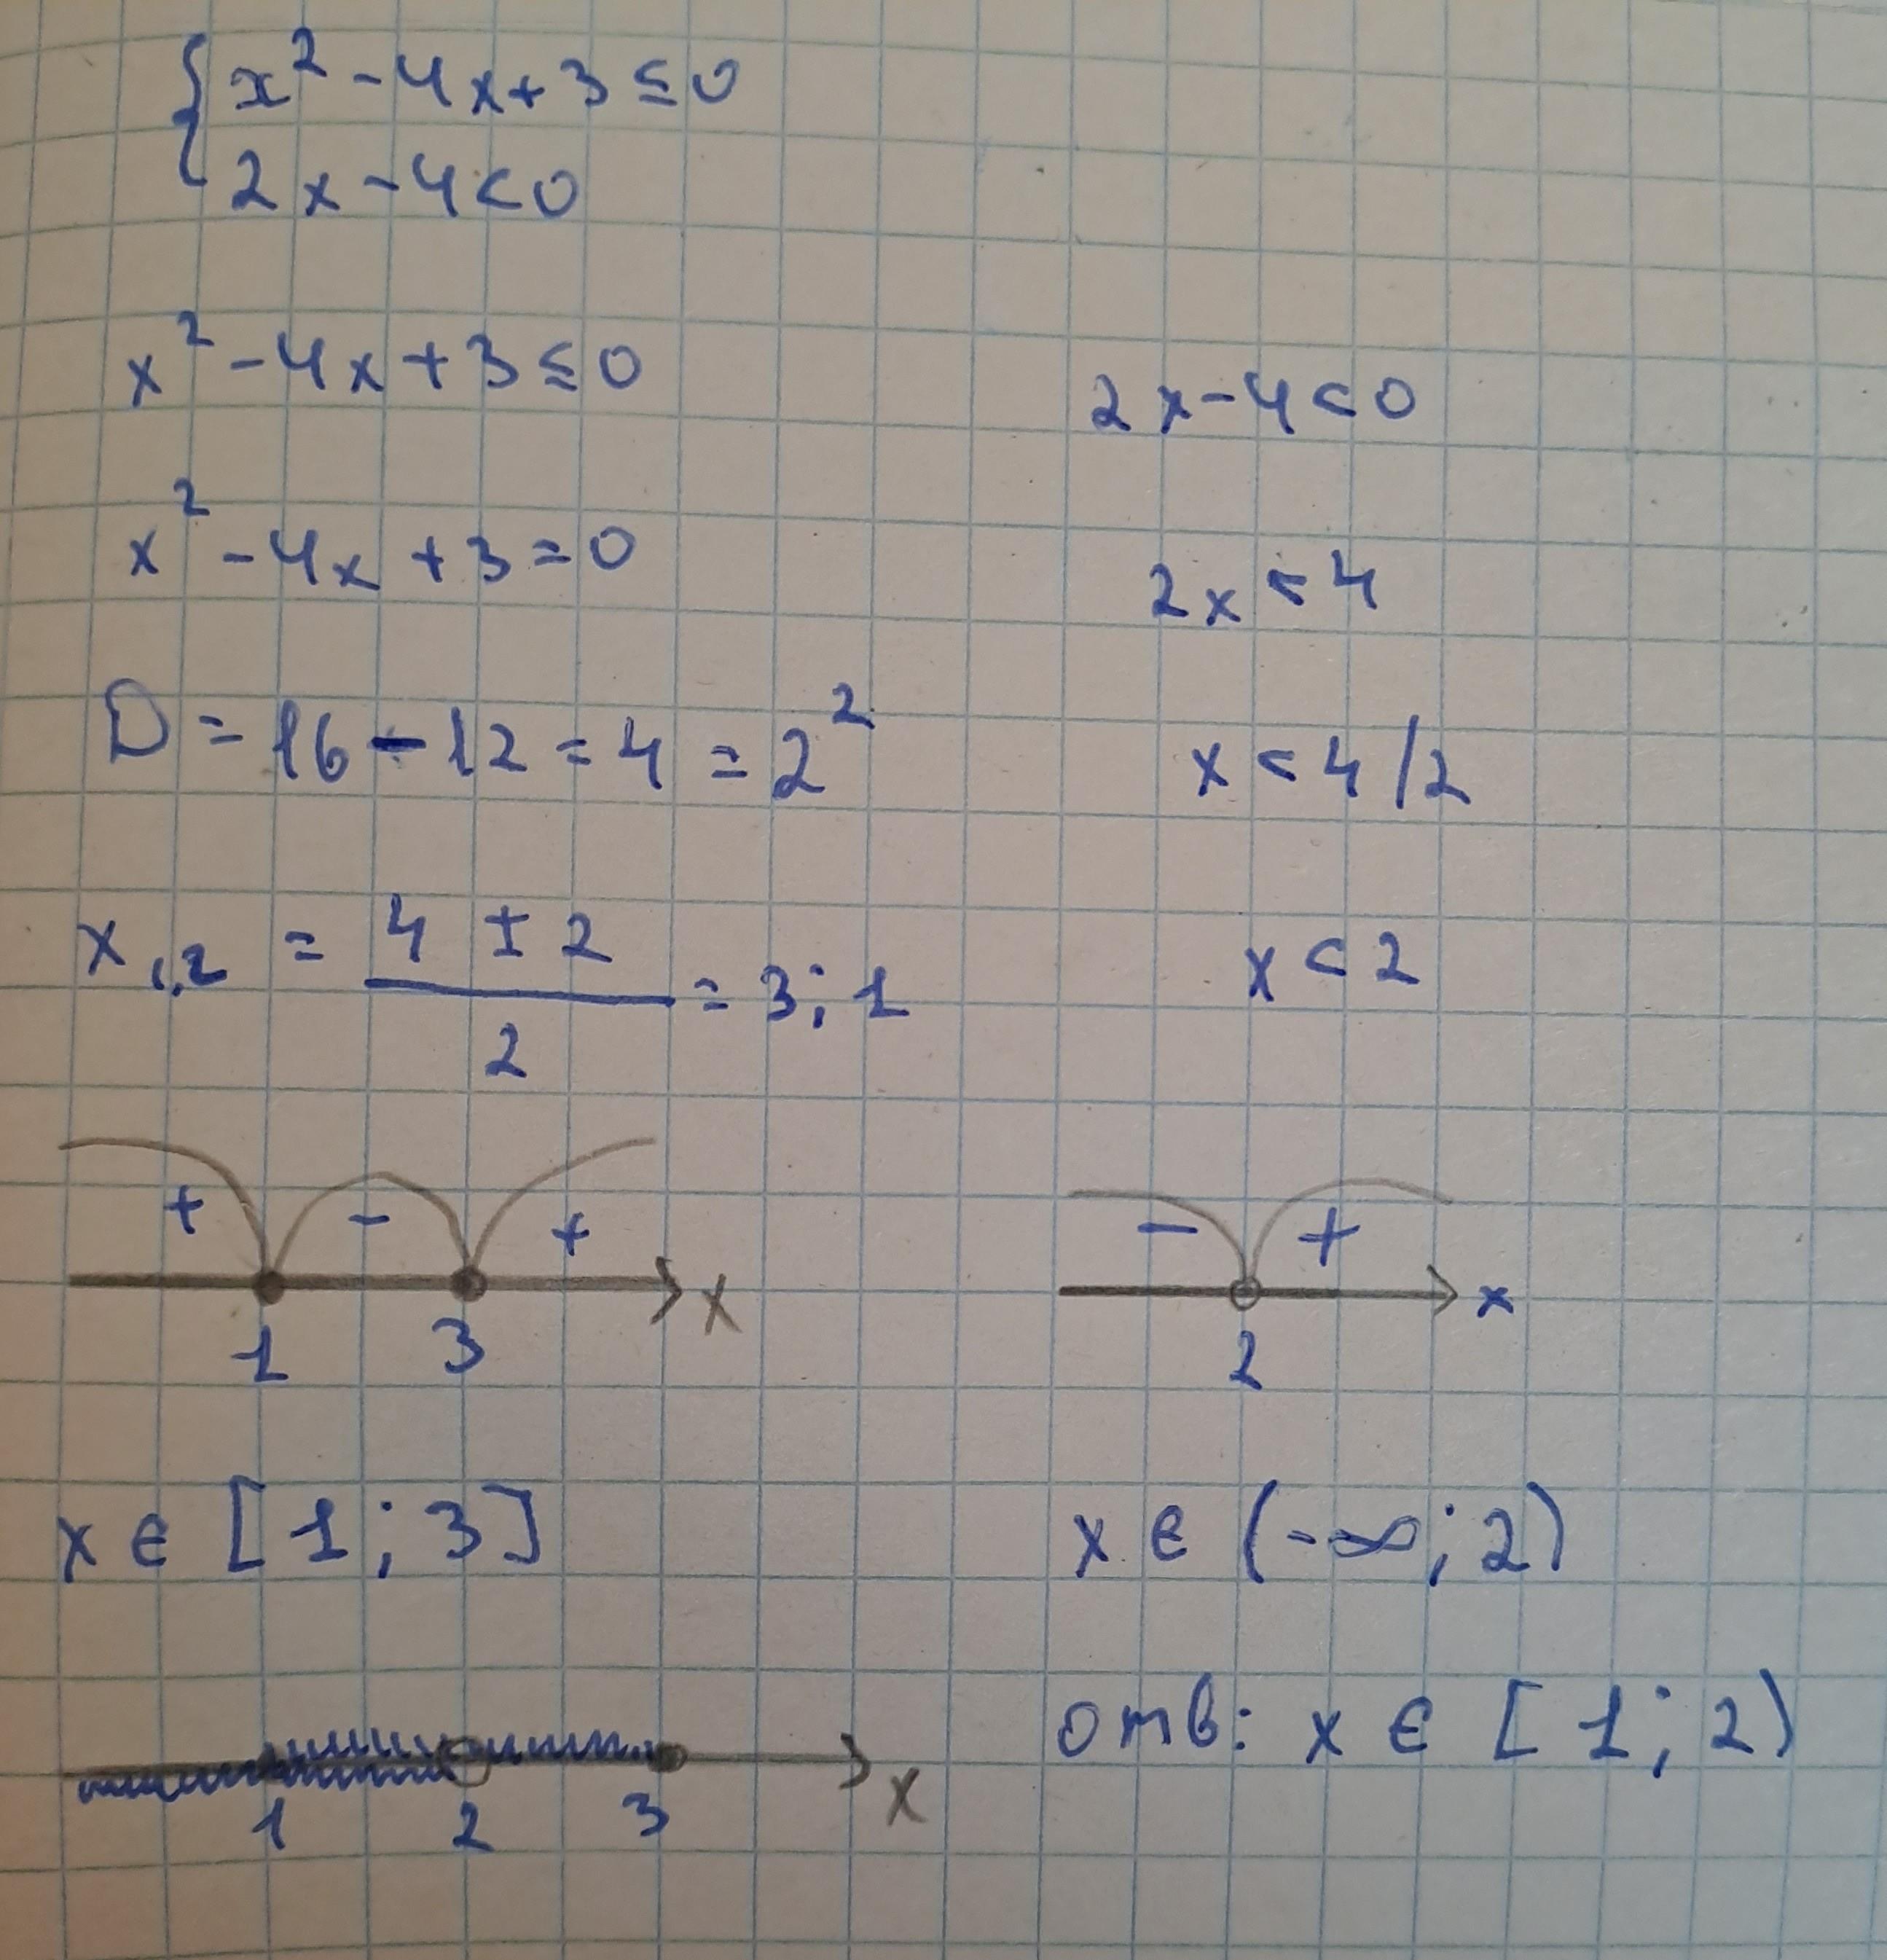 { x² - 4x + 3 ≤ 0
2x - 4 < 0
x² - 4x + 3 ≤ 0
x² - 4x + 3 = 0
D = 16 - 12 = 4 = 2²
x₁,₂ = (4 ± 2)/2 = 3; 1
+ - + x
1 3
x ∈ [1; 3]
2x - 4 < 0
2x < 4
x < 4/2
x < 2
- + x
2
x ∈ (-∞; 2)
x
1 2 3
отв: x ∈ [1; 2)